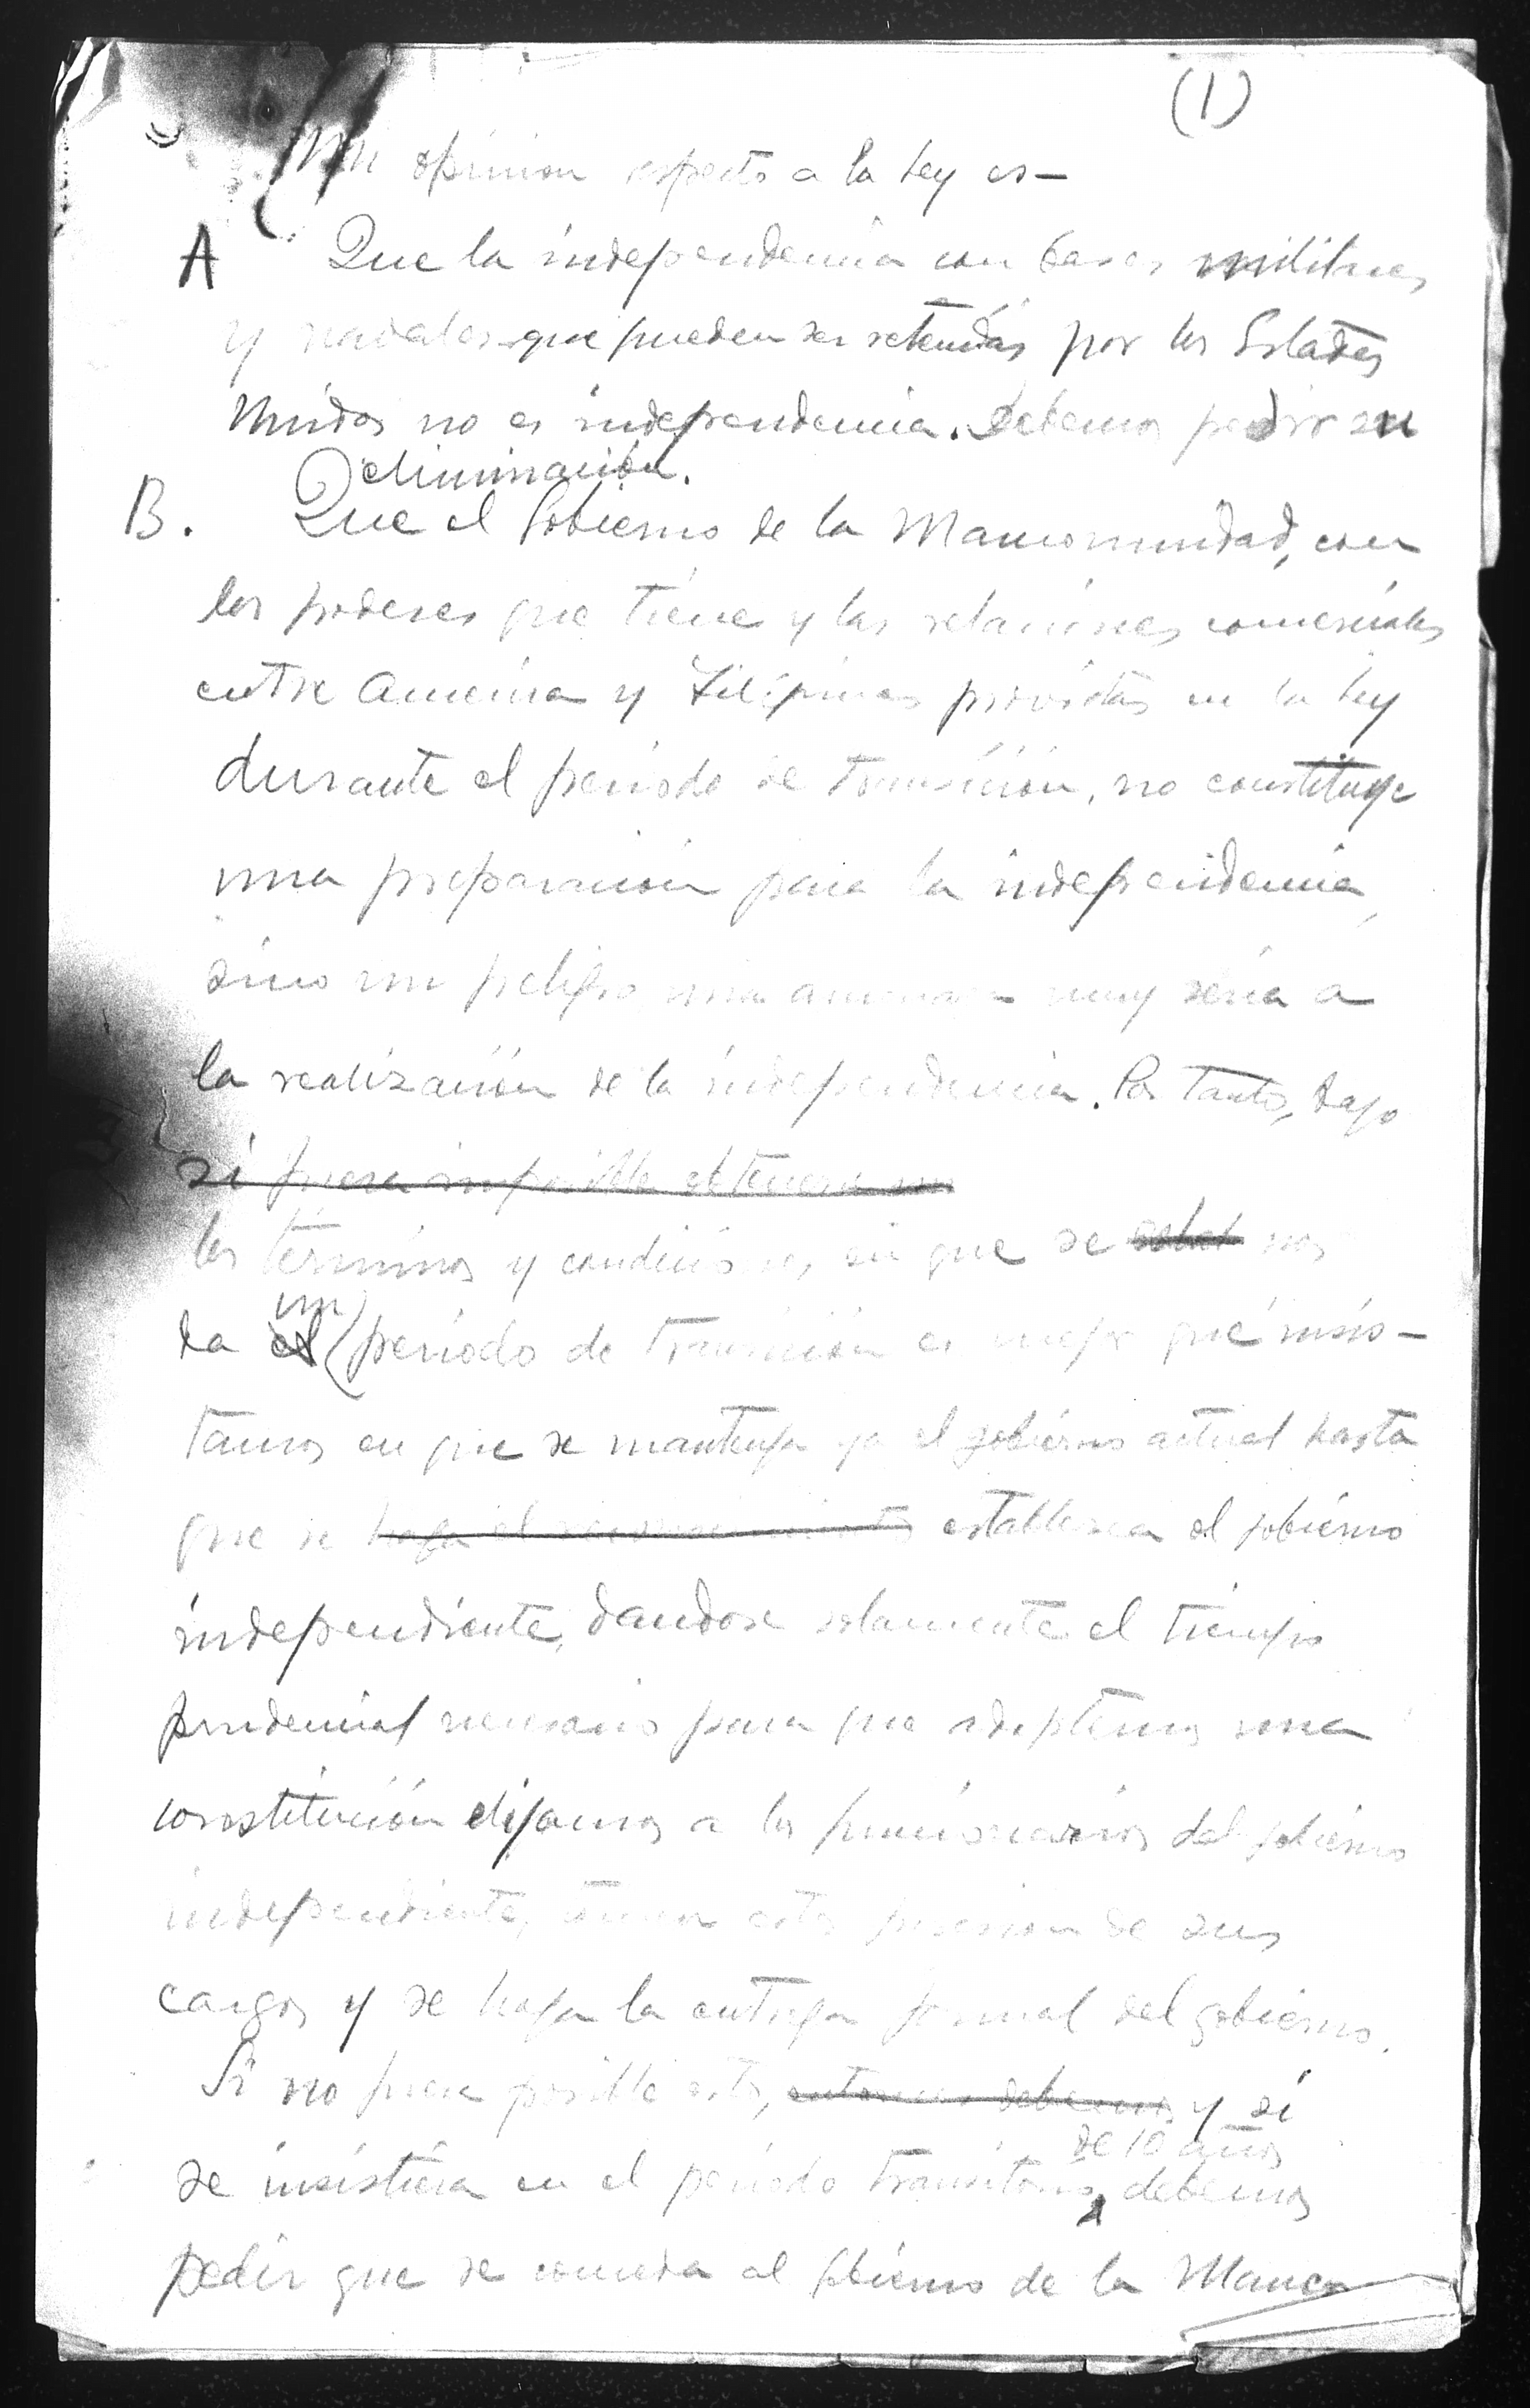 (1)
Mi opinion respecto a la ley es—
A Que la independencia con bases militares
y navales que pueden ser retenidas por los Estados
Unidos no es independencia. Debemos pedir su
eliminación.
B. Que el Gobierno de la Mancomunidad, con
los poderes que tiene y las relaciones comerciales
entre America y Filipinas provistas en la ley
durante el periodo de transición, no constituye
una preparacion para la independencia,
sino un peligro una amenaza muy séria a
la realización de la independencia. Por tanto, bajo
si fuera imposible obtener un
los términos y condiciones en que se nos
da el un periodo de transición es mejor que insis-
tamos en que se mantenga ya el gobierno actual hasta
que se haga el reconocimiento establezca el gobierno
independiente, dandose solamente el tiempo
prudencial necesario para que adoptemos una
constitución elijamos a los funcionarios del gobierno
independiente, tomen estos posesion de sus
cargos y se haga la entrega formal del gobierno.
Si no fuera posible esto, entonces debemos y si
se insistiera en el periodo transitorio de 10 años debemos
pedir que se conceda al gobierno de la Manco